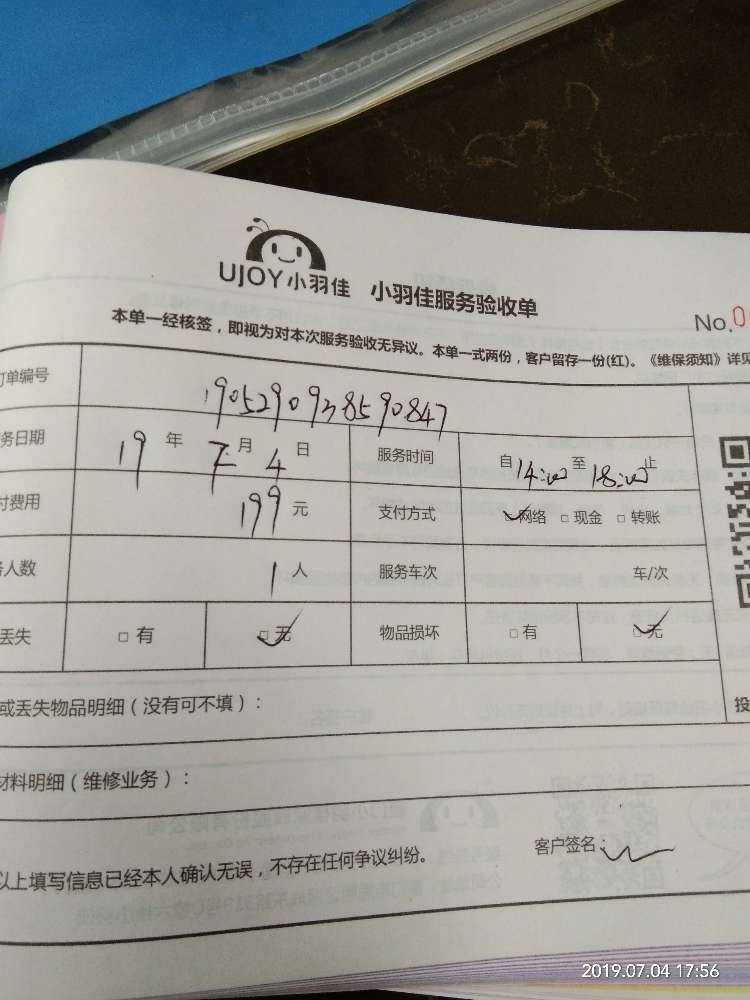 UJOY小羽佳 小羽佳服务验收单
No.0
本单一经核签，即视为对本次服务验收无异议。本单一式两份，客户留存一份(红)。《维保须知》详见
订单编号 190529093859 0847
务日期 19 年 7 月 4 日 服务时间 自 14:00 至 18:00 止
付费用 199 元 支付方式 ☑网络 □现金 □转账
务人数 1 人 服务车次 车/次
丢失 □有 ☑无 物品损坏 □有 ☑无
或丢失物品明细（没有可不填）：
投
材料明细（维修业务）：
以上填写信息已经本人确认无误，不存在任何争议纠纷。 客户签名：
2019.07.04 17:56